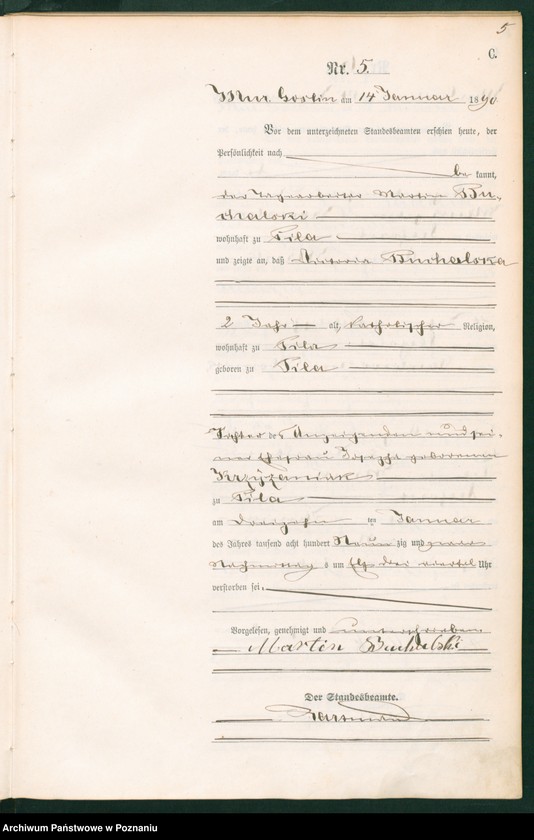 5
C.
Nr. 5.
am 14 Januar 1890
Vor dem unterzeichneten Standesbeamten erschien heute, der
Persönlichkeit nach
be kannt,
der Tagearbeiter Martin Bu-
chalski
wohnhaft zu Pila
und zeigte an, daß Victoria Buchalska
2 Jahr alt, katholischer Religion,
wohnhaft zu Pila
geboren zu Pila
Tochter des Anzeigenden und sei-
ner Ehefrau Josepha geborenen
Krzyżaniak
zu Pila
am dreizehn ten Januar
des Jahres tausend acht hundert Neun zig und zwar
Nachmittag s um Elf drei viertel Uhr
verstorben sei.
Vorgelesen, genehmigt und unterschrieben
Martin Buchalski
Der Standesbeamte.
Archiwum Państwowe w Poznaniu